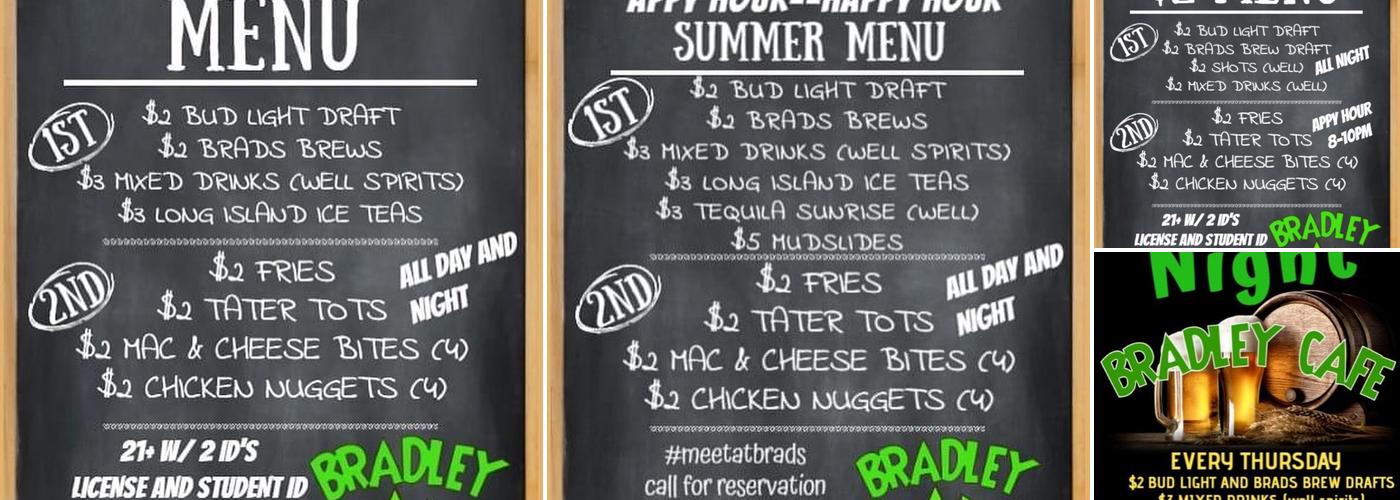 MENU
1ST
$2 BUD LIGHT DRAFT
$2 BRADS BREWS
$3 MIXED DRINKS (WELL SPIRITS)
$3 LONG ISLAND ICE TEAS
2ND
$2 FRIES
$2 TATER TOTS
ALL DAY AND
NIGHT
$2 MAC & CHEESE BITES (4)
$2 CHICKEN NUGGETS (4)
21+ W/ 2 ID'S
LICENSE AND STUDENT ID
BRADLEY
APPY HOUR--HAPPY HOUR
SUMMER MENU
1ST
$2 BUD LIGHT DRAFT
$2 BRADS BREWS
$3 MIXED DRINKS (WELL SPIRITS)
$3 LONG ISLAND ICE TEAS
$3 TEQUILA SUNRISE (WELL)
$5 MUDSLIDES
2ND
$2 FRIES
$2 TATER TOTS
ALL DAY AND
NIGHT
$2 MAC & CHEESE BITES (4)
$2 CHICKEN NUGGETS (4)
#meetatbrads
call for reservation
BRADLEY
$2 MENU
1ST
$2 BUD LIGHT DRAFT
$2 BRADS BREW DRAFT
$2 SHOTS (WELL)
ALL NIGHT
$2 MIXED DRINKS (WELL)
2ND
$2 FRIES
$2 TATER TOTS
APPY HOUR
8-10PM
$2 MAC & CHEESE BITES (4)
$2 CHICKEN NUGGETS (4)
21+ W/ 2 ID'S
LICENSE AND STUDENT ID
BRADLEY
Night
BRADLEY CAFE
EVERY THURSDAY
$2 BUD LIGHT AND BRADS BREW DRAFTS
$3 MIXED DRINKS (well spirits)